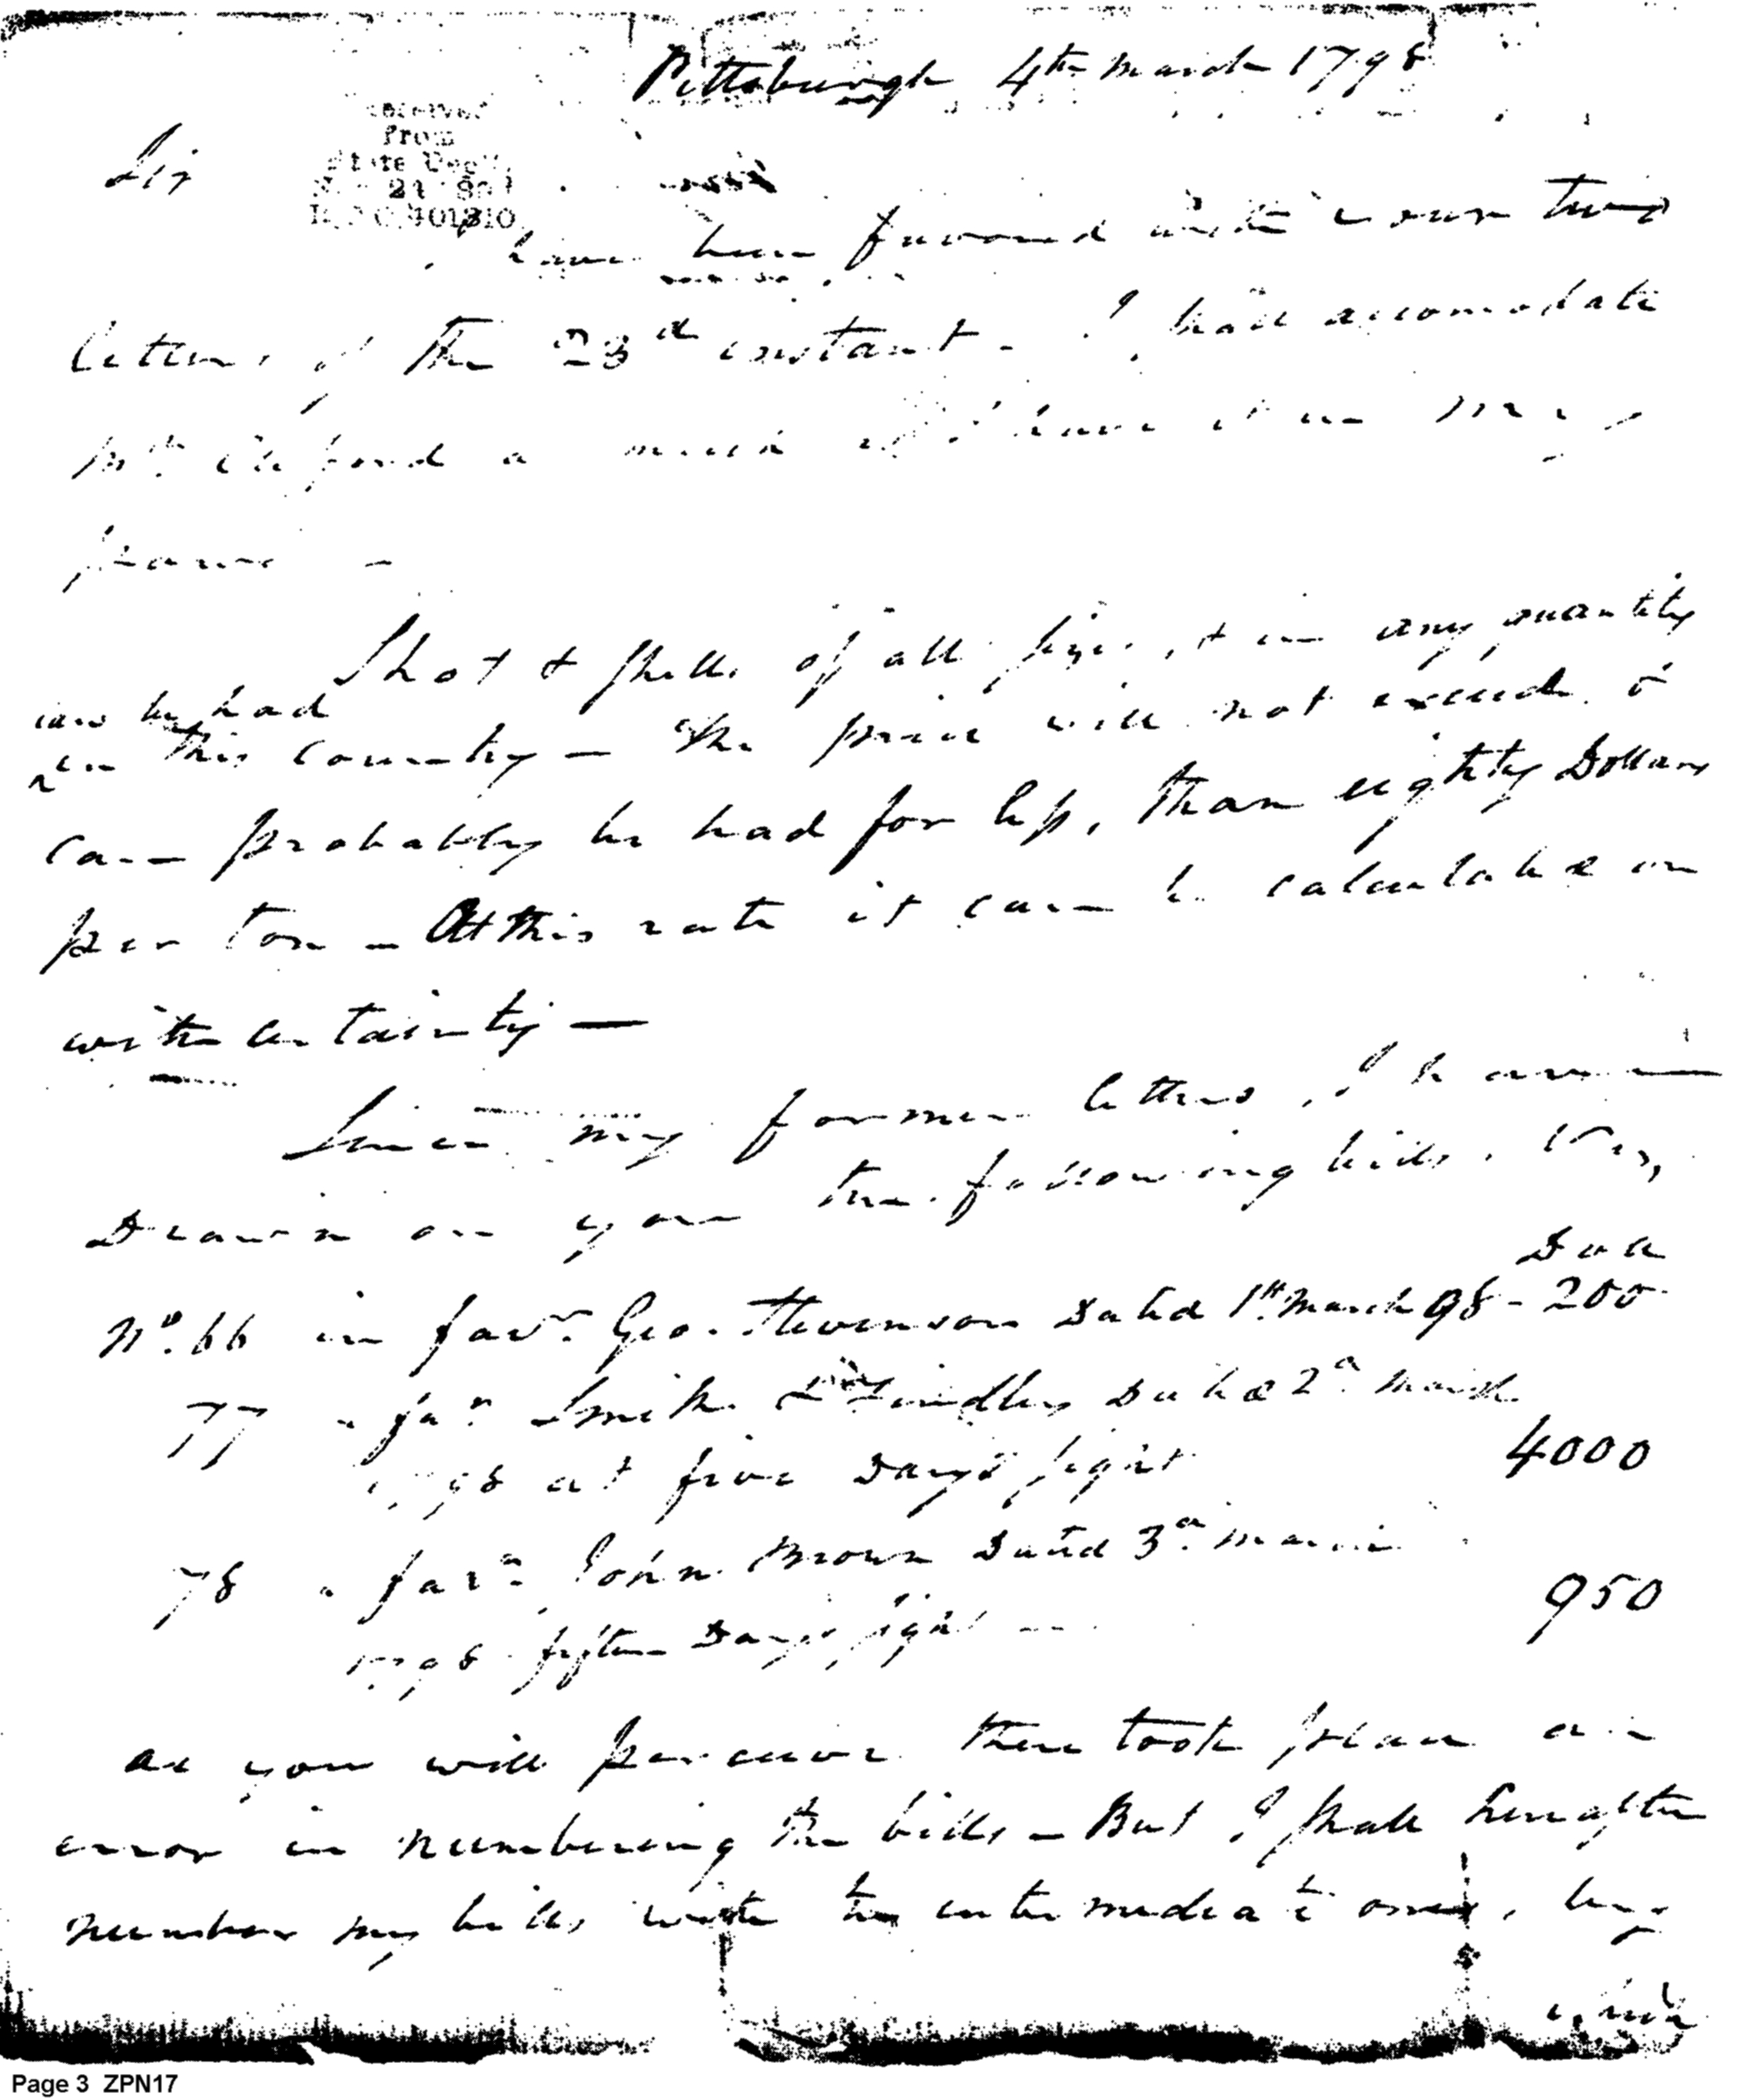 Pittsburgh 4th March 1798
Received
From
State Dep't.
Sir
have been favoured with your two
letters of the 23d instant - I shall accomodate
Mr. as much as I have it in my
power -
Shot & Shells of all sizes, & in any quantity
can be had
in this Country - The price will not exceed, &
can probably be had for less, than eighty Dollars
per ton - At this rate it can be calculated on
with certainty -
Since my former letters, I have
Drawn on you the following bills. Viz,
Doll
No. 66 in favr. Geo. Stevenson Dated 1st. March 98 - 200
77 " favr. Smith & Findley Dated 2d. March
1798 at five Days sight 4000
78 " favr. John Brown Dated 3d. March
1798 fifteen Days sight - 950
as you will perceive there took place an
error in numbering the bills - But I shall hereafter
number my bills, with the intermediate ones, by
which
Page 3 ZPN17